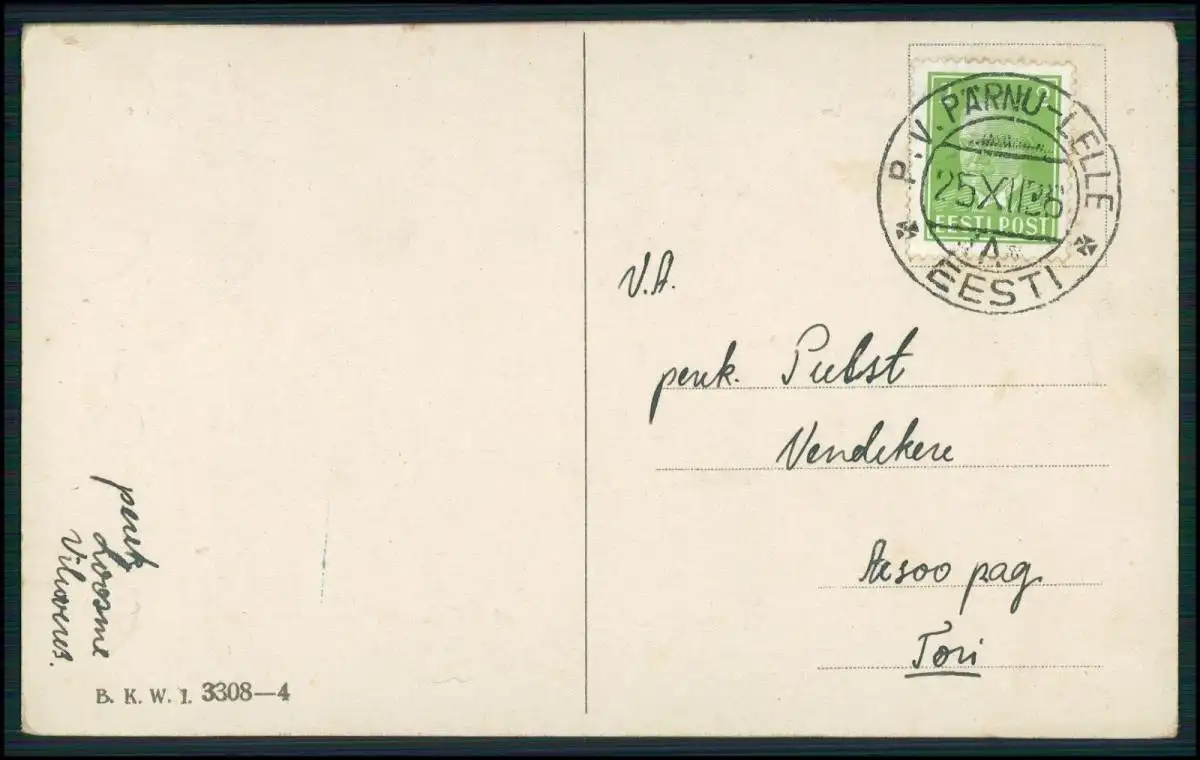 P. V. PÄRNU-LELLE
25 XII 36
A
EESTI
EESTI POST
V.A.
perek. Pubst
Vendekere
Aesoo pag.
Tori
perek
Loosme
Vihveres.
B. K. W. I. 3308—4